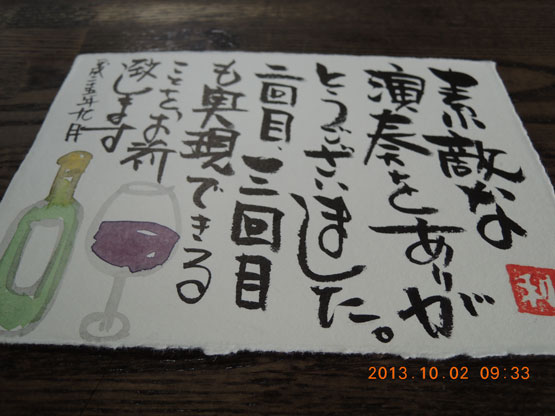 素敵な
演奏をありが
とうございました。
二回目、三回目
も実現できる
ことをお祈
致します
平成二十五年九月
利
2013.10.02 09:33